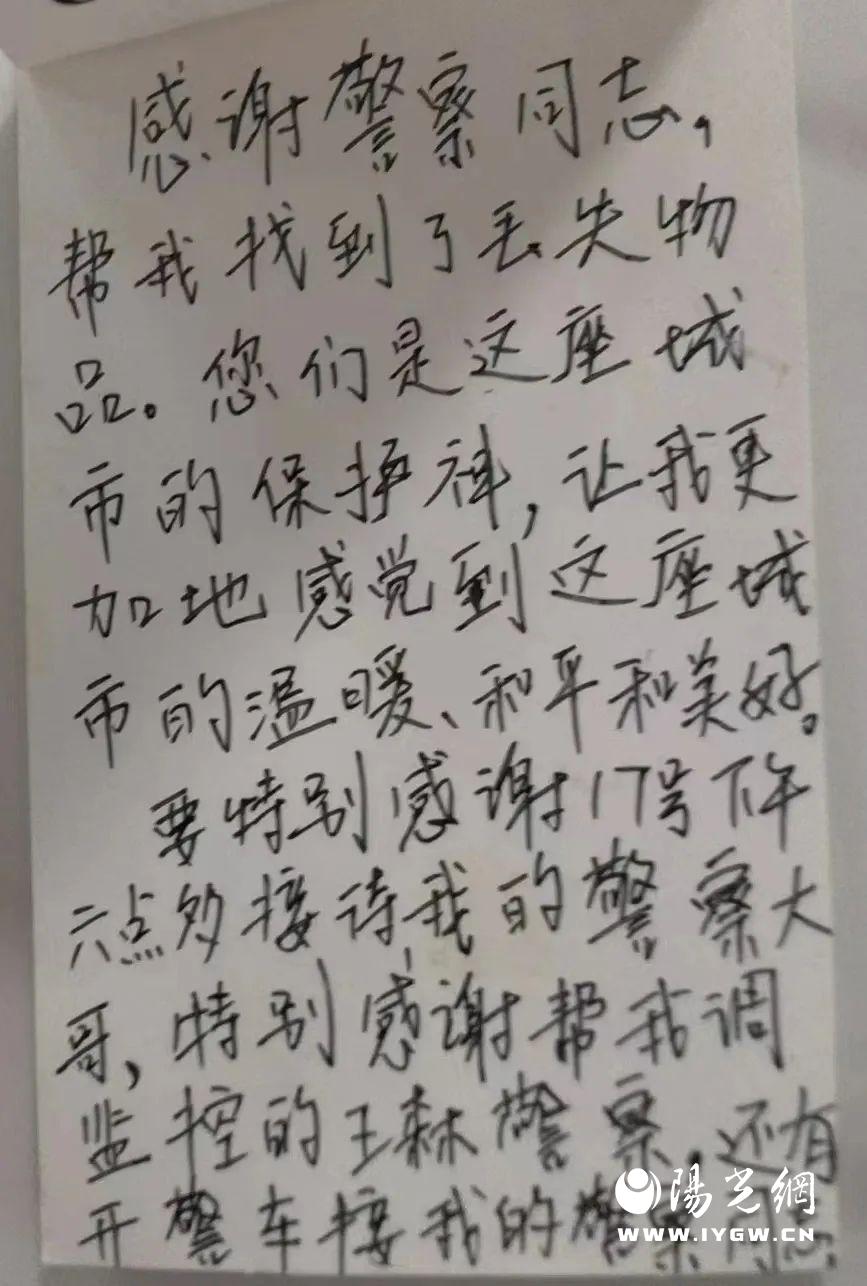 感谢警察同志,
帮我找到了丢失物
品。您们是这座城
市的保护神,让我更
加地感觉到这座城
市的温暖、和平和美好。
要特别感谢17号下午
六点多接待我的警察大
哥,特别感谢帮我调
监控的王森警察,还有
开警车接我的警察同志
陽光網
WWW.IYGW.CN